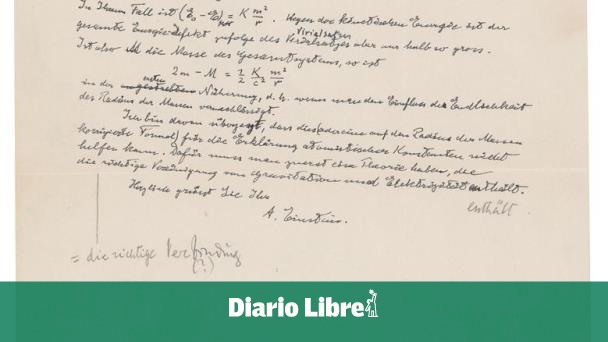 In Ihrem Fall ist (ε₀ - ε) = K m²/r. Wegen der kinetischen Energie ist der
Virialsatzes
gesamte Energiedefekt zufolge des Virialsatzes aber nur halb so gross.
Ist also M die Masse des Gesamtsystems, so ist
2m - M = 1/2 K/c² m²/r
ersten
in der Näherung, d. h. wenn man den Einfluss der Endlichkeit
des Radius der Massen vernachlässigt.
Ich bin davon überzeugt, dass dies (oder eine auf den Radius der Massen
Formel) für die Erklärung atomistischer Konstanten nicht
helfen kann. Dafür muss man zuerst eine Theorie haben, die
die richtige Vereinigung von Gravitation und Elektrizität enthält.
Herzlich grüsst Sie Ihr
A. Einstein.
enthält
= die richtige Verbindung
(?)
Diario Libre